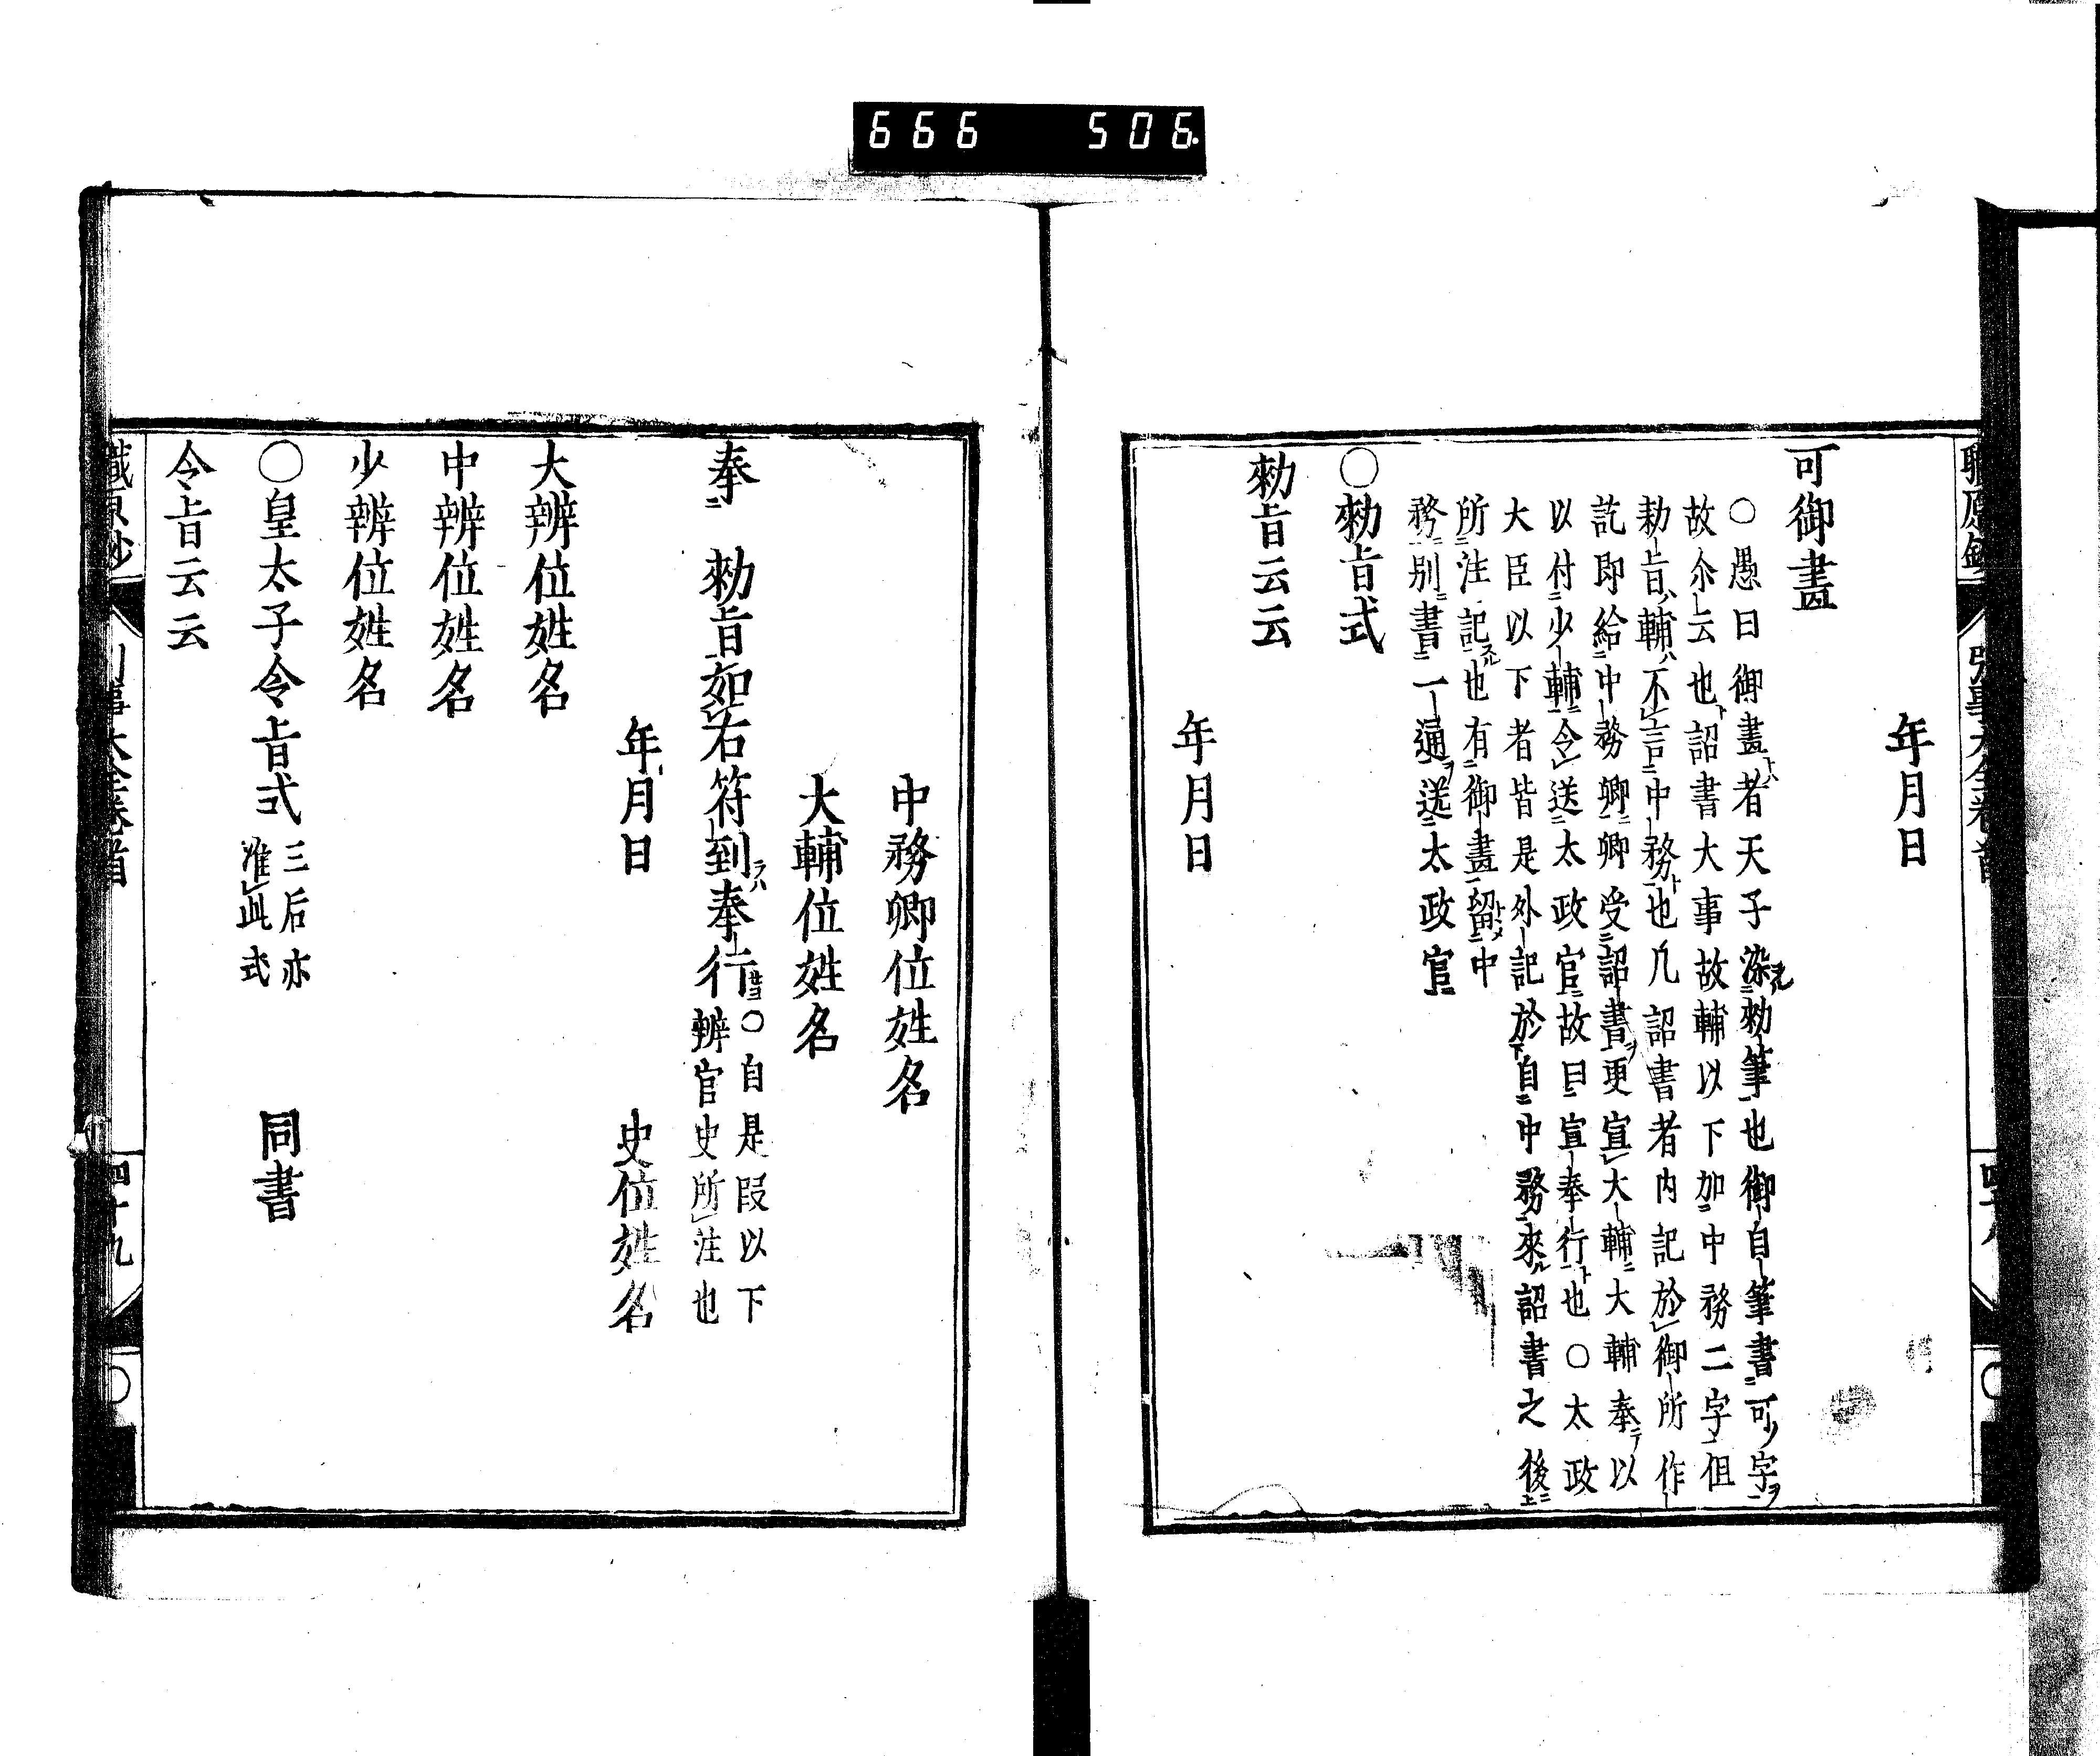 666 506
年月日
可御畫
○愚曰御畫者天子染勅筆也御自筆書可字
故尒云也詔書大事故輔以下加中務二字但
勅旨輔不言中務也凡詔書者内記於御所作
訖即給中務卿卿受詔書更宣大輔大輔奉以
以付少輔令送太政官故曰宣奉行也○太政
大臣以下者皆是外記於自中務來詔書之後
所注記也有御畫留中
務別書一通送太政官
○勅旨式
勅旨云云
年月日
中務卿位姓名
大輔位姓名
奉 勅旨如右符到奉行
○自是段以下
辨官史所注也
年月日 史位姓名
大辨位姓名
中辨位姓名
少辨位姓名
○皇太子令旨式
三后亦
准此式
同書
令旨云云
四十九